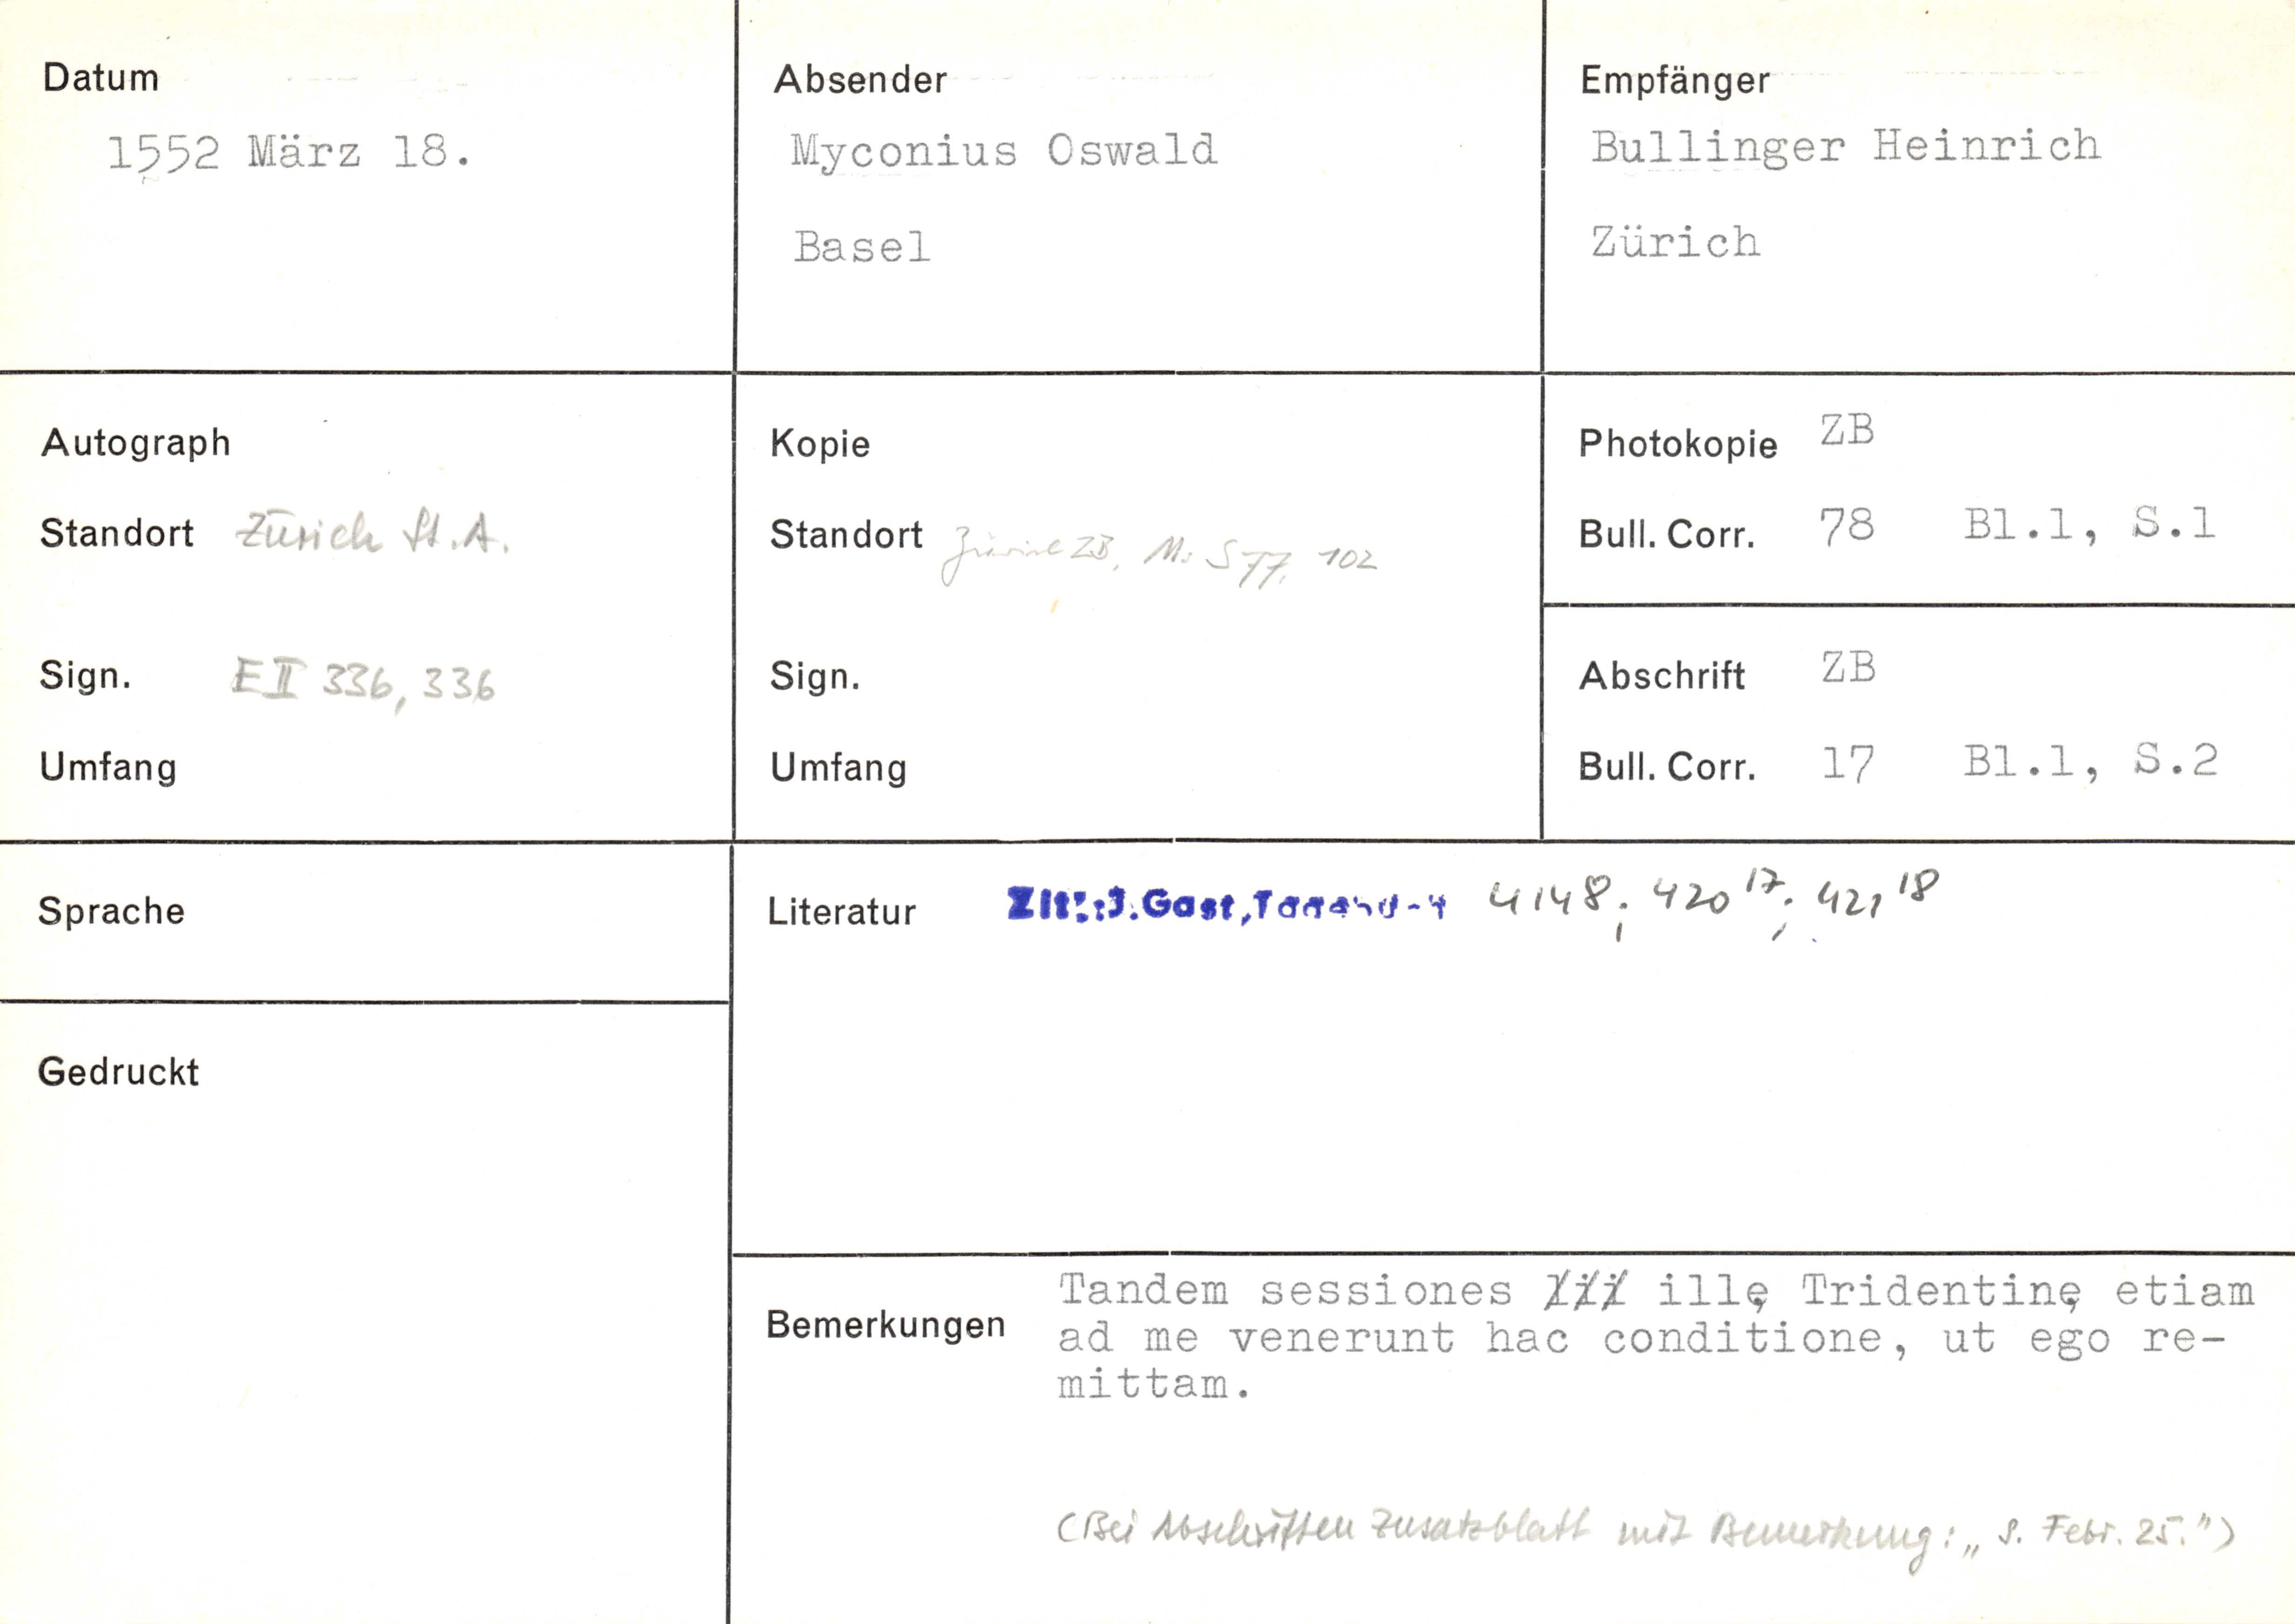 Datum
1552 März 18.
Absender
Myconius Oswald
Basel
Empfänger
Bullinger Heinrich
Zürich
Autograph
Standort Zürich St.A.
Sign. E II 336, 336
Umfang
Kopie
Standort Zürich ZB, Ms S 77, 102
Sign.
Umfang
Photokopie ZB
Bull. Corr. 78 Bl.1, S.1
Abschrift ZB
Bull. Corr. 17 Bl.1, S.2
Sprache
Gedruckt
Literatur Zit.: J. Gast, 4148; 420 17; 421 18
Bemerkungen
Tandem sessiones illę Tridentinę etiam
ad me venerunt hac conditione, ut ego re-
mittam.
(Bei Abschriften Zusatzblatt mit Bemerkung: „s. Febr. 25.")